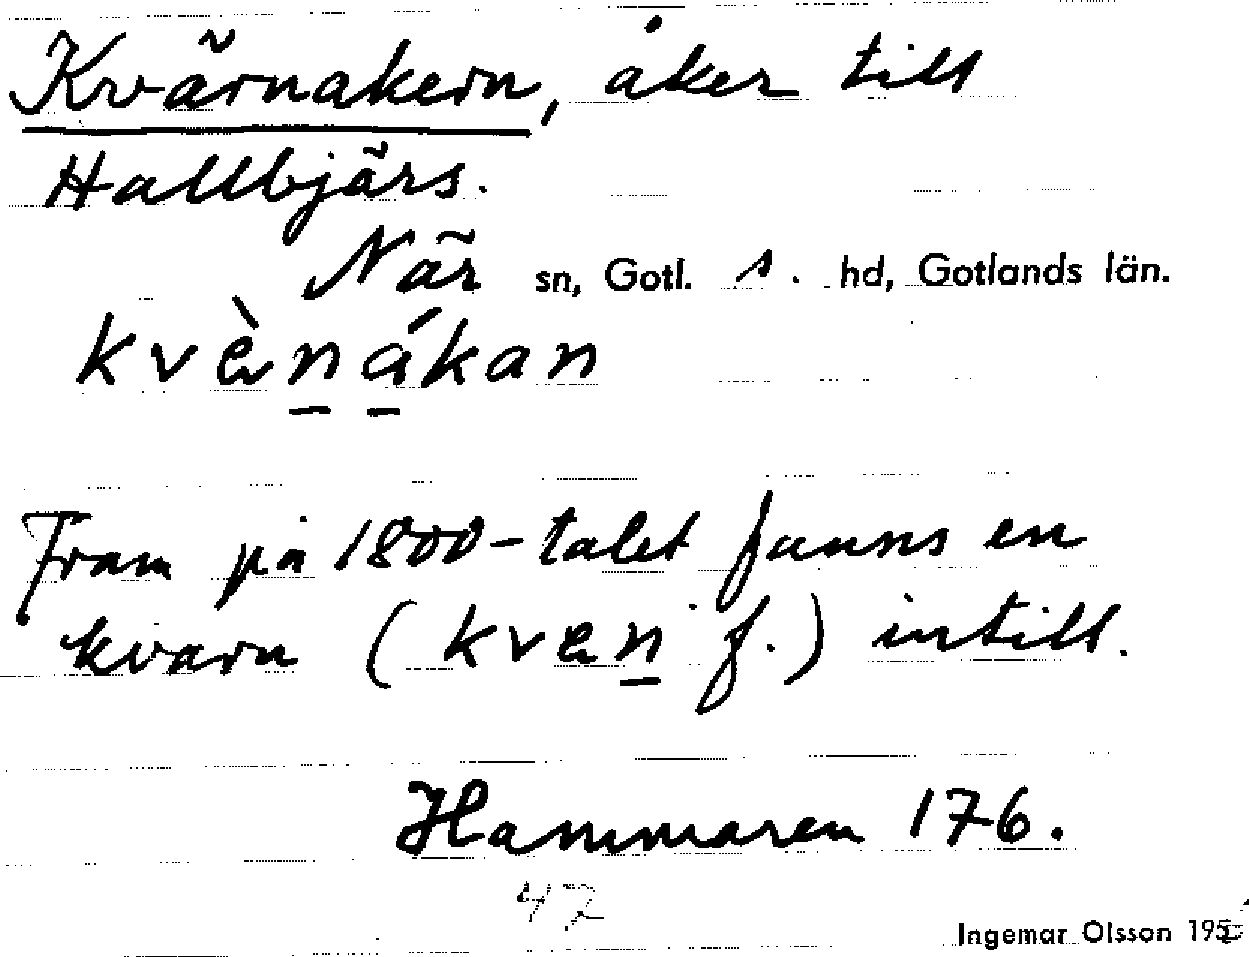 Kvärnakern, åker till
Hallbjärs.
När sn, Gotl. s. hd, Gotlands län.
kvènákan
Fram på 1800-talet fanns en
kvarn (kvæn f.) intill.
Hammaren 176.
47
Ingemar Olsson 195